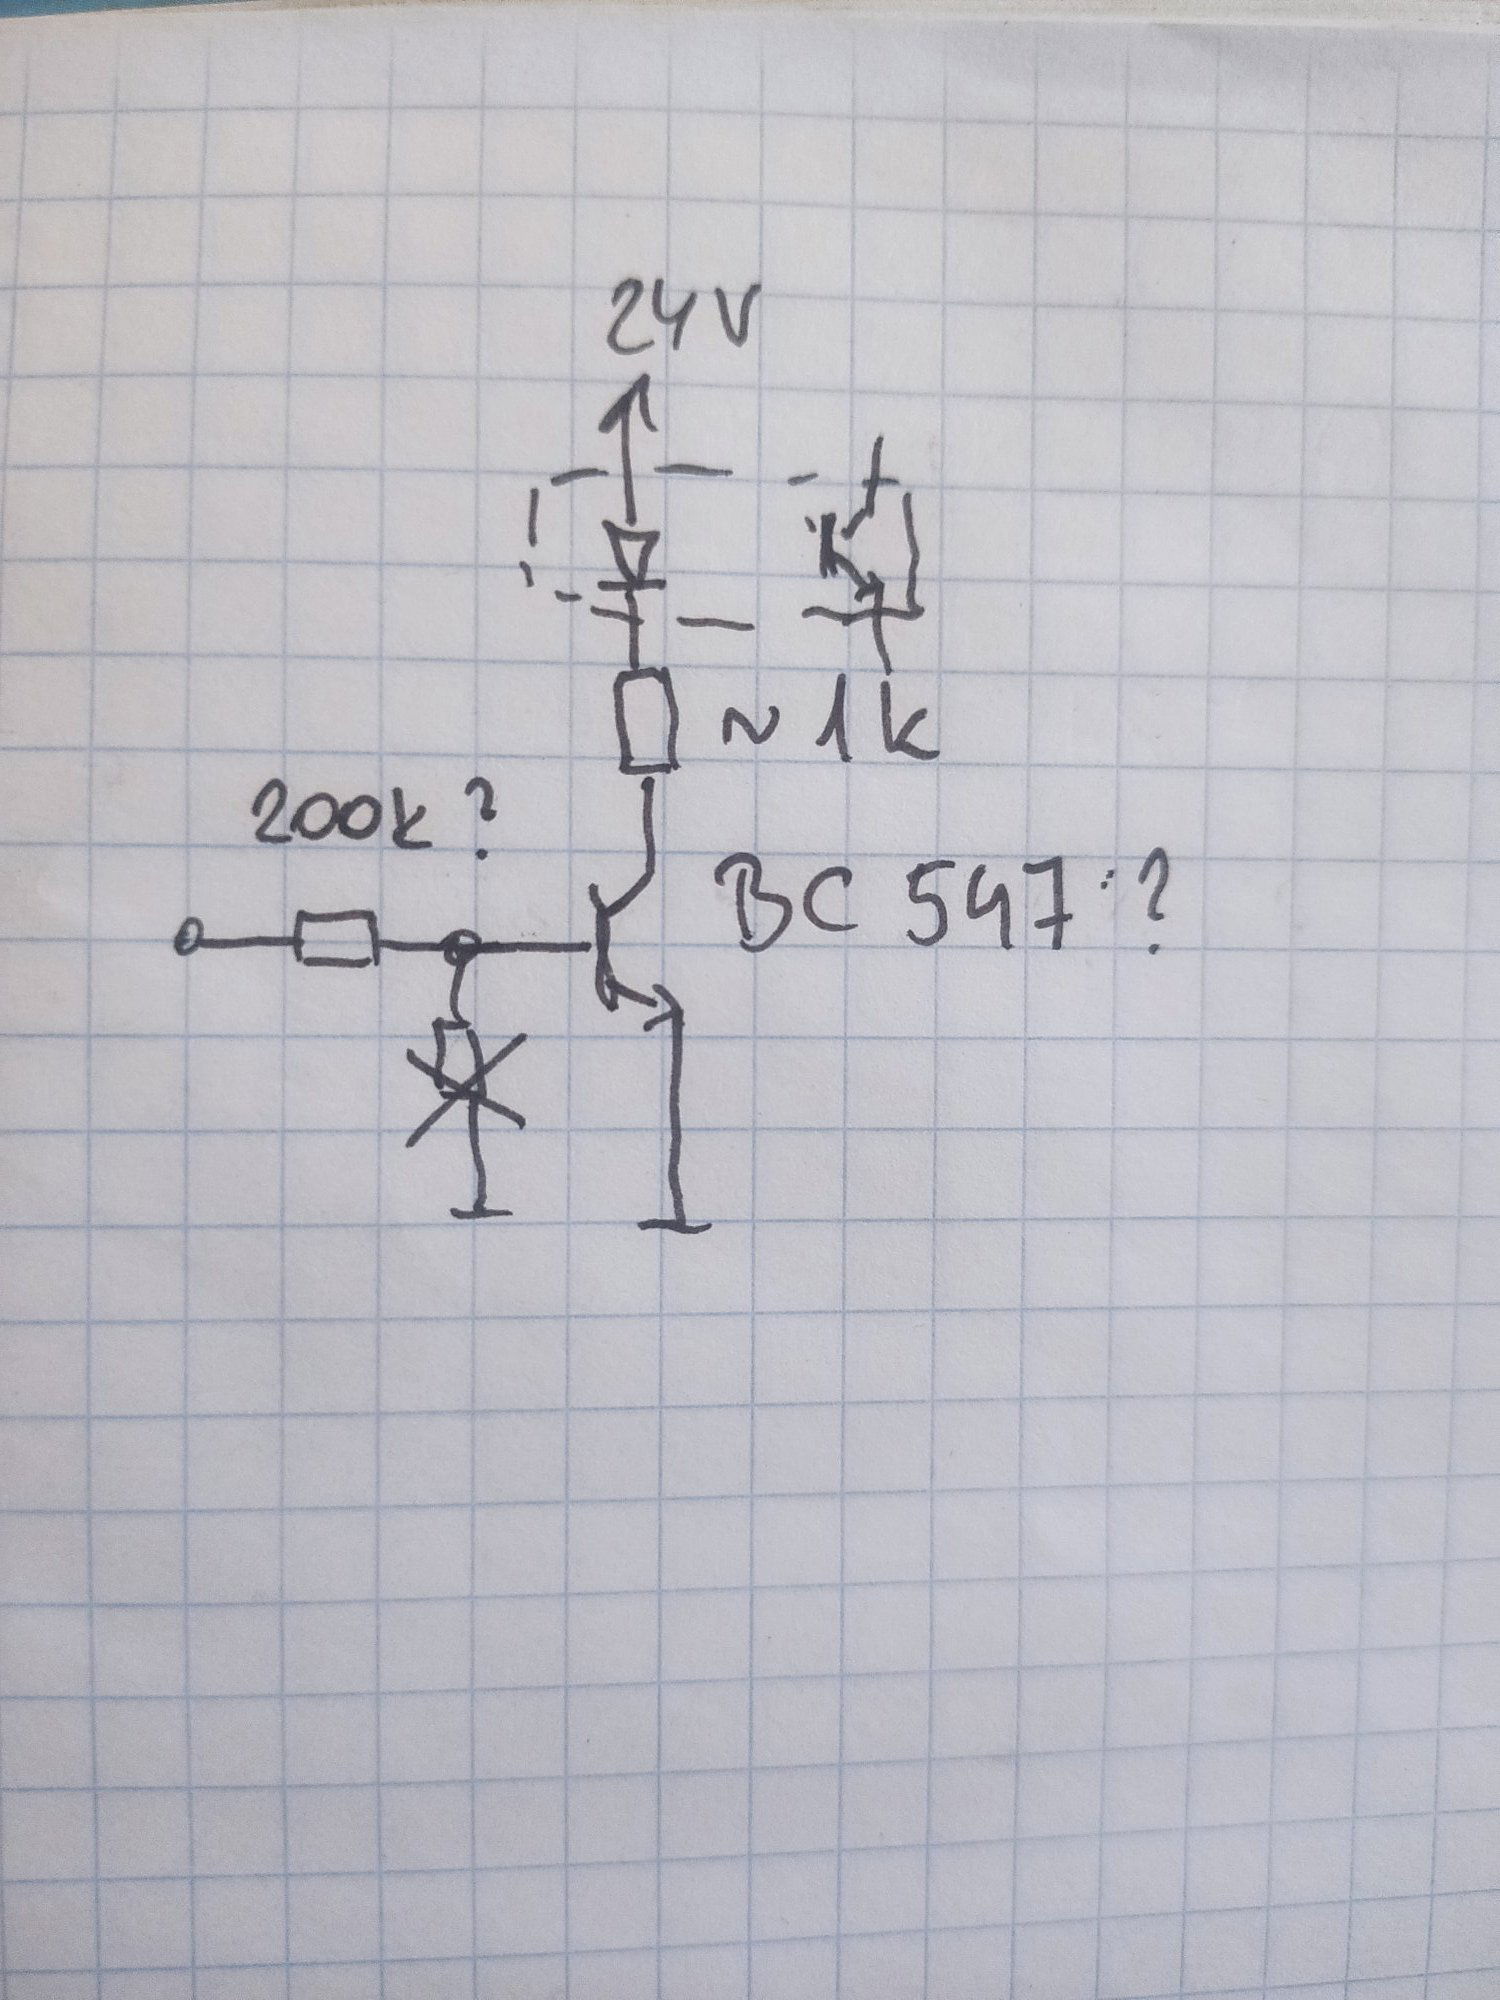 24V
~1k
200k?
BC 547?